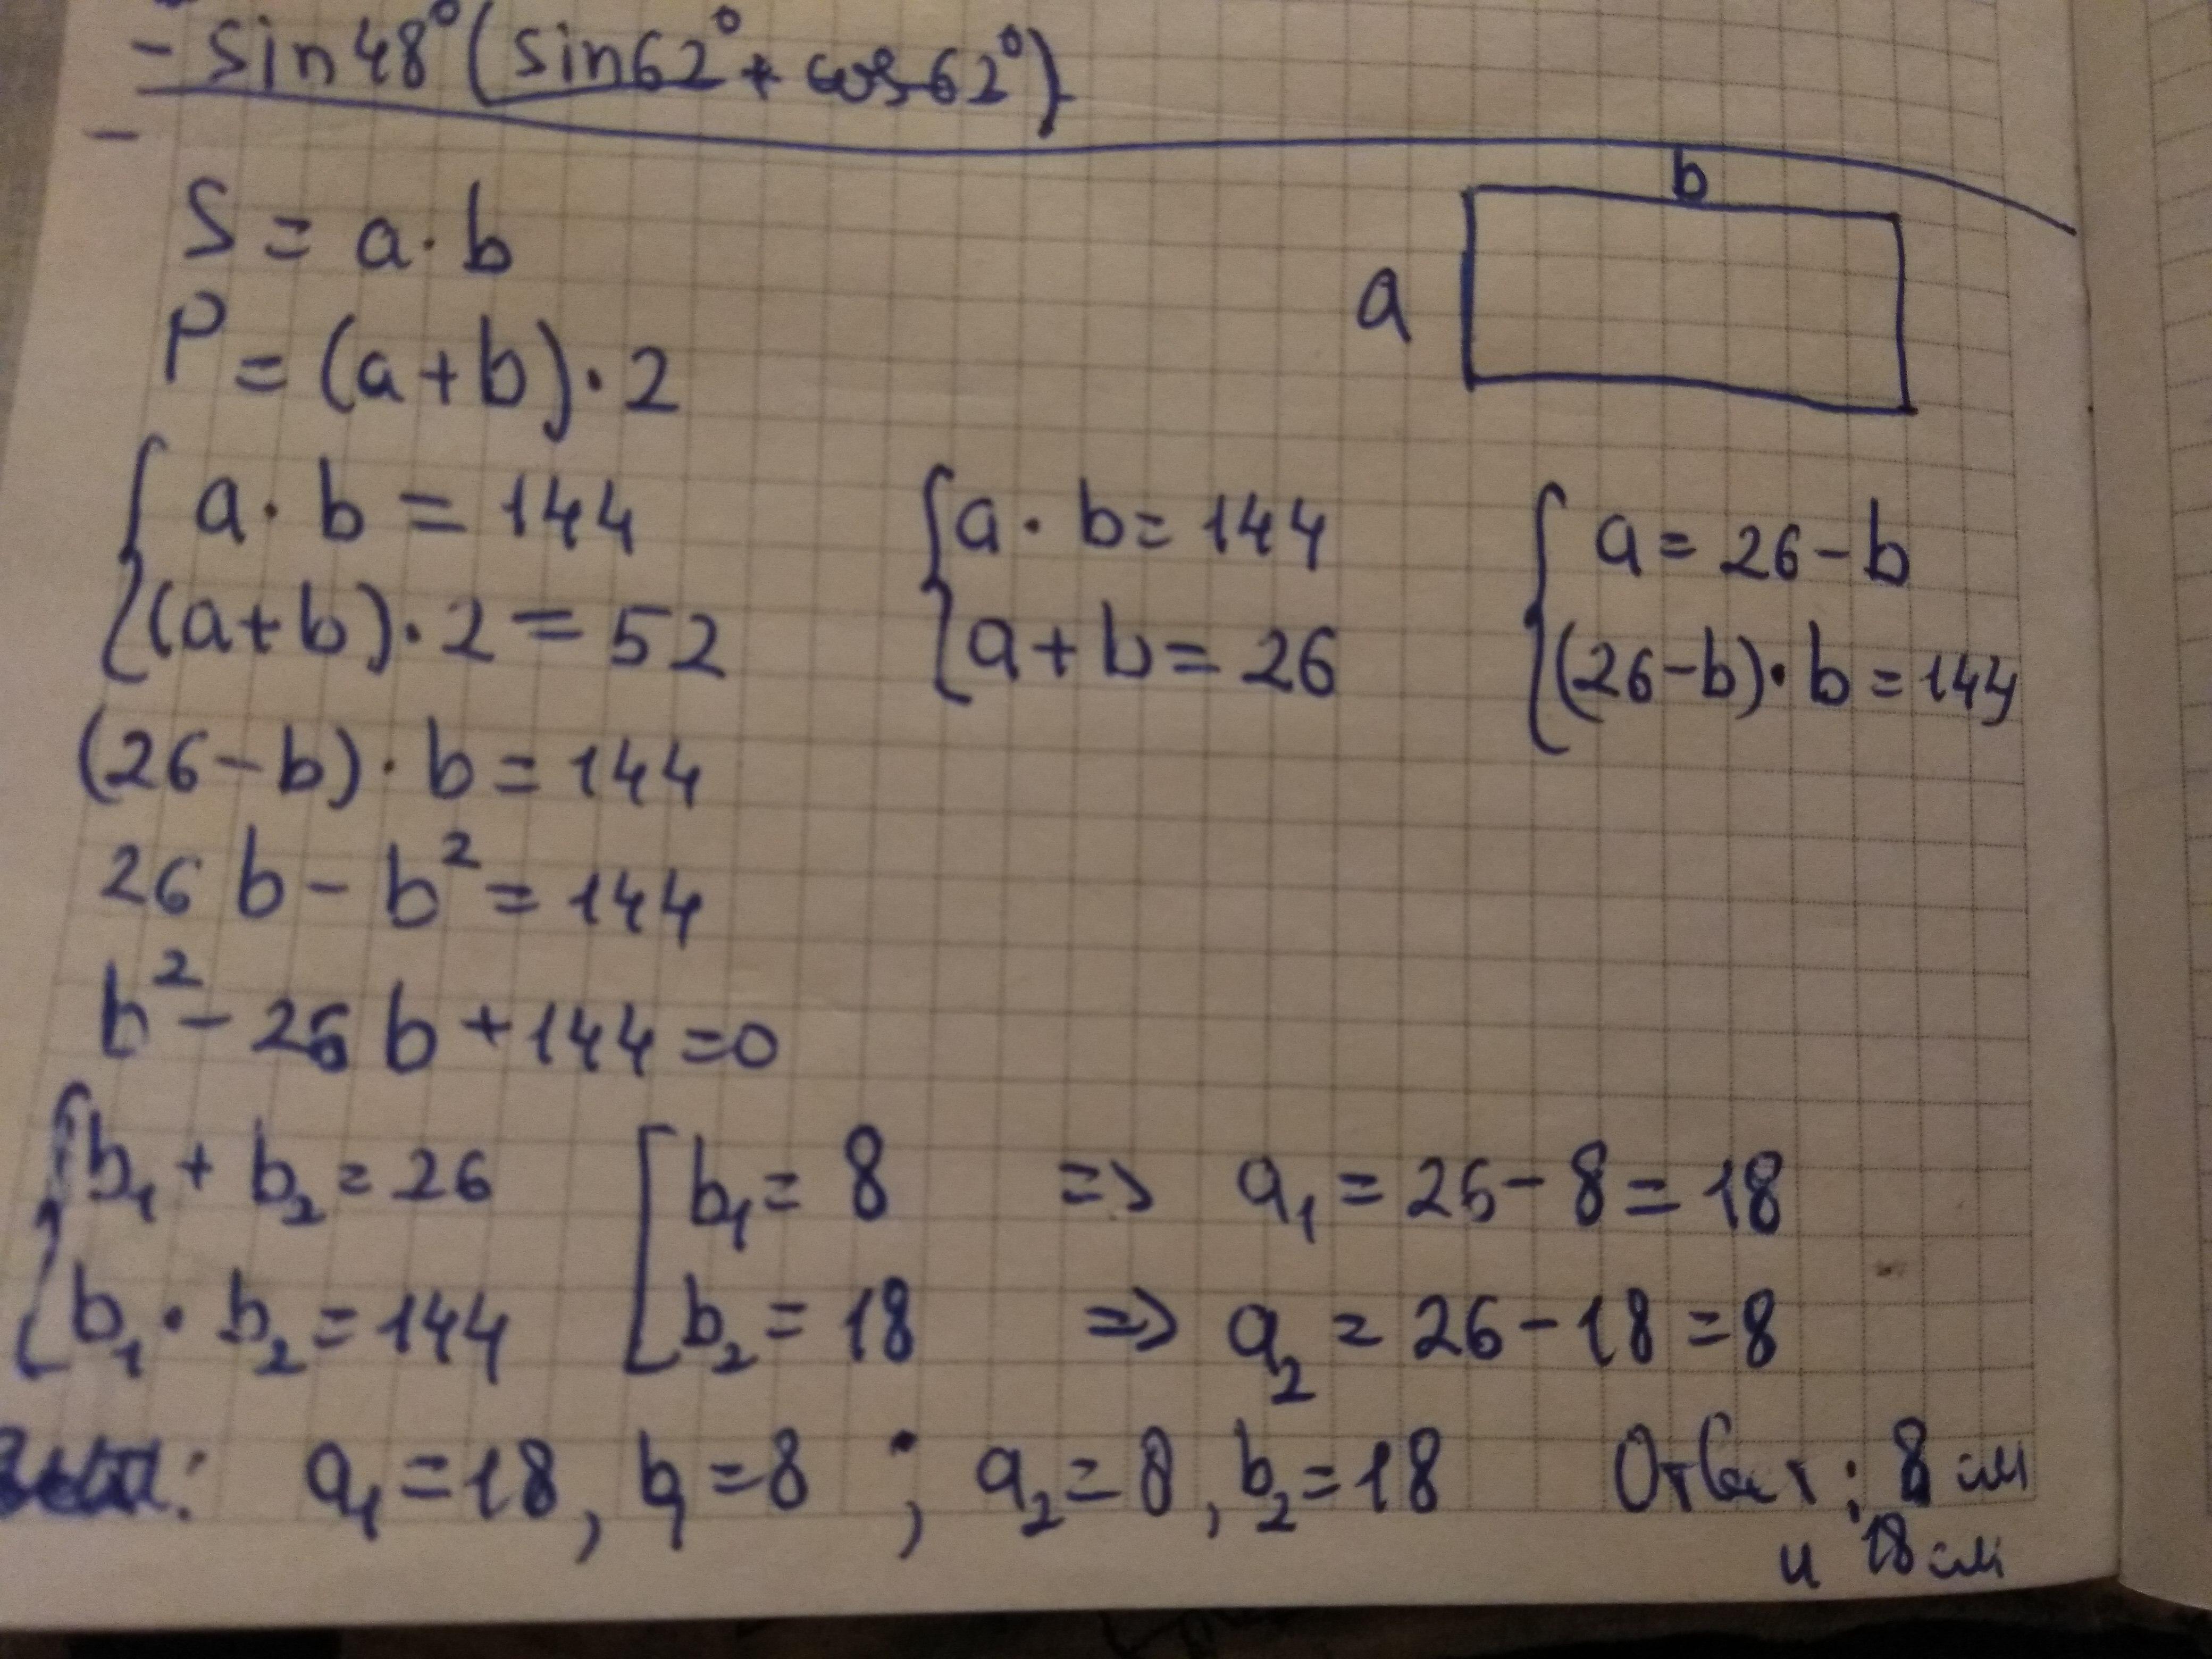 - sin48°(sin62° + cos62°)
-
b
S = a · b
a
P = (a+b) · 2
a · b = 144
a · b = 144
a = 26 - b
(a+b) · 2 = 52
a + b = 26
(26-b) · b = 144
(26-b) · b = 144
26b - b² = 144
b² - 26b + 144 = 0
b₁ + b₂ = 26
b₁ = 8 => a₁ = 26 - 8 = 18
b₁ · b₂ = 144
b₂ = 18 => a₂ = 26 - 18 = 8
a₁ = 18, b₁ = 8 ; a₂ = 8, b₂ = 18 Ответ: 8 см
и 18 см